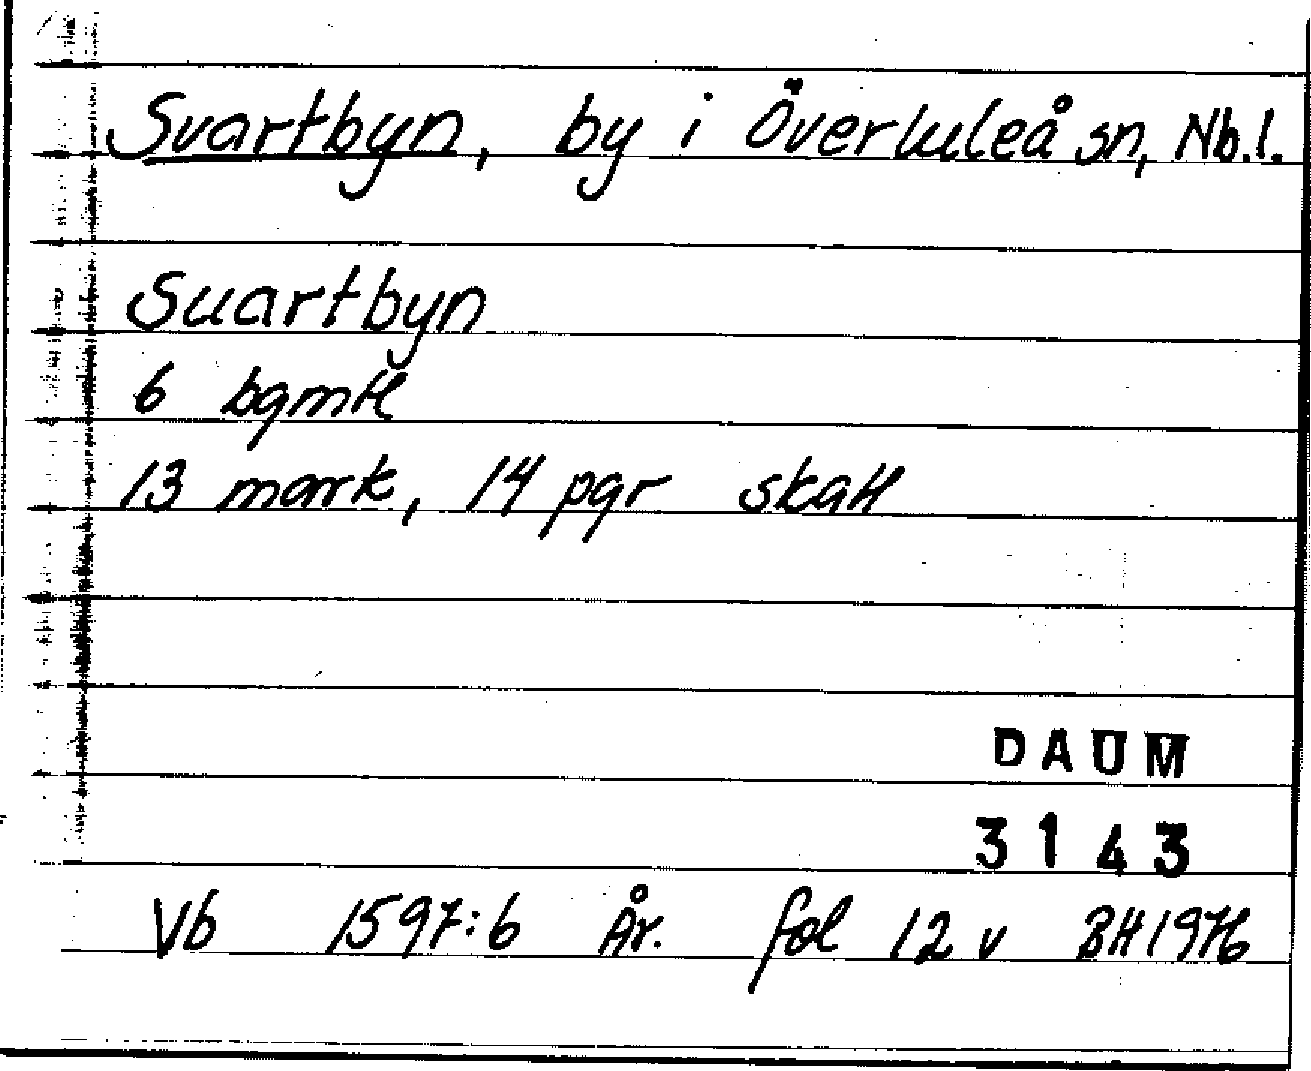 Svartbyn, by i Överluleå sn, Nb.l.
Suartbyn
6 bgmtl
13 mark, 14 pgr skatt
DAUM
3143
Vb 1597:6 År. fol 12 v BH1976